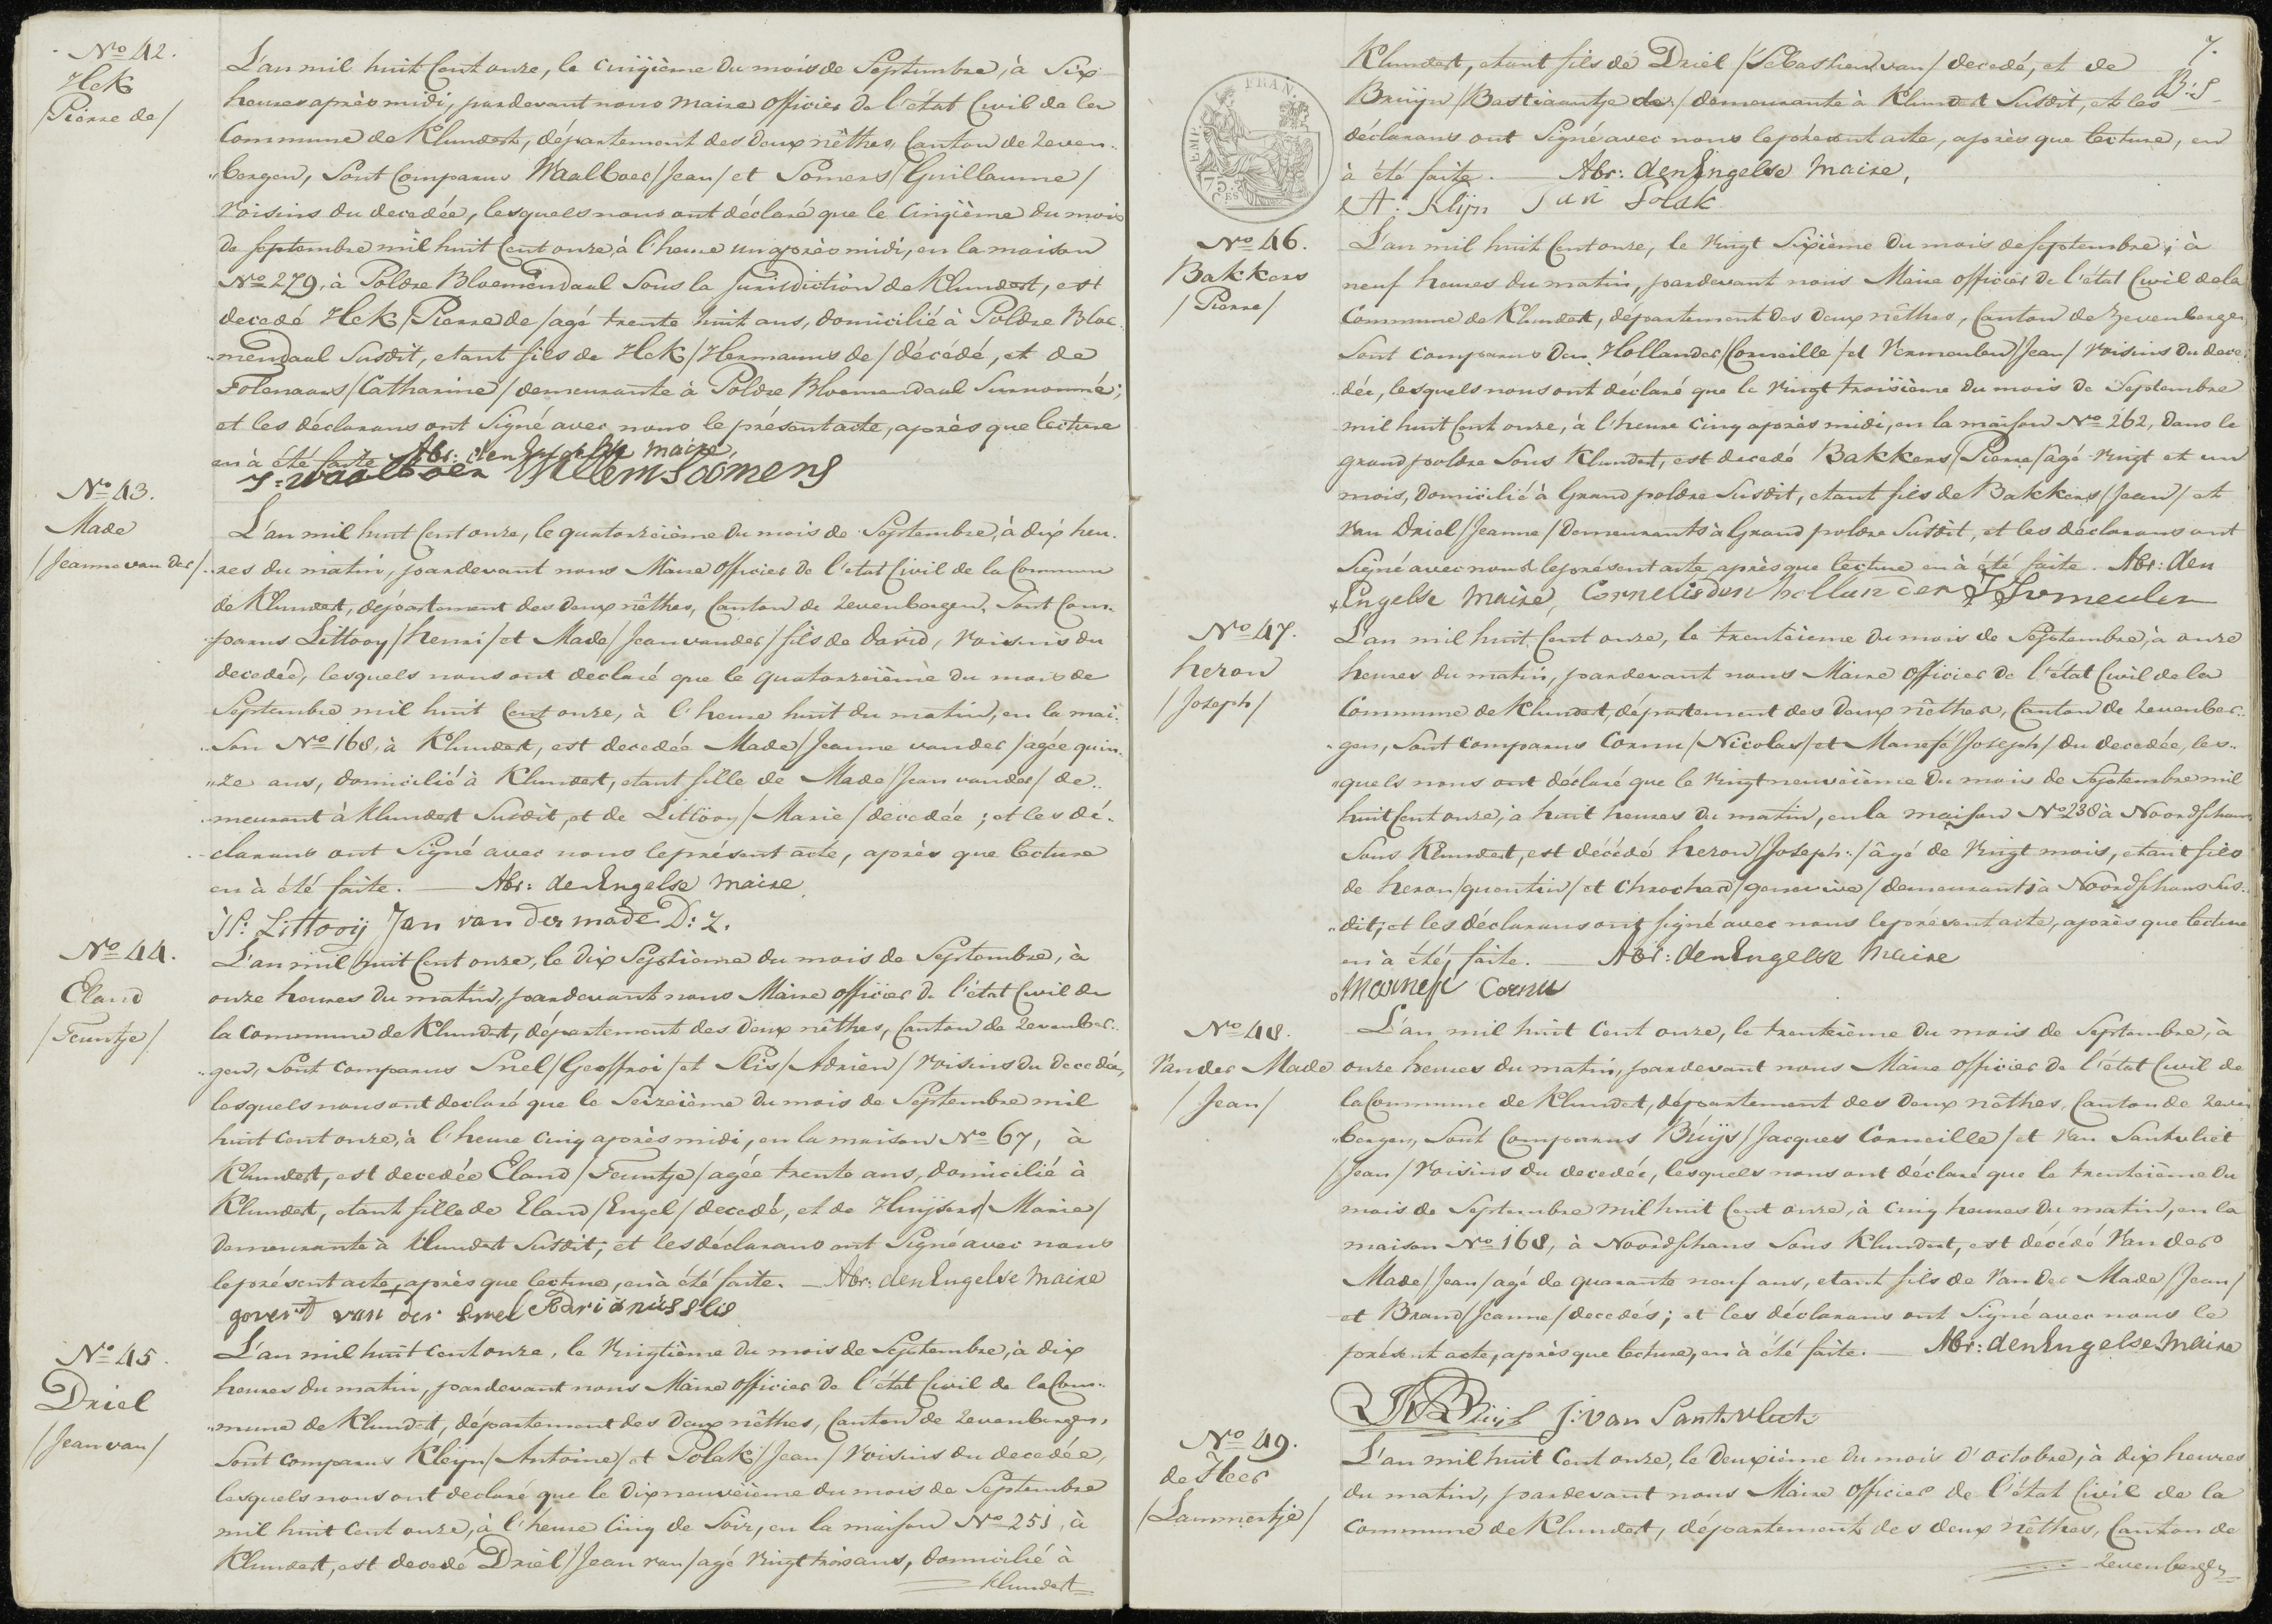 No 42.
Hek
/Pierre de/
L'an mil huit Cent onze, le cinqième du mois de Septembre, à Six
heures après midi, pardevant nous maire officier de l'état Civil de la
Commune de Klundert, département des deux nêthes, Canton de Zeven-
"bergen, Sont Comparus Waalboer/Jean/ et Somers/Guillaume/
voisins du decedée, lesquels nous ont déclaré que le Cinqième du mois
de septembre mil huit Cent onze à l'heure un après midi, en la maison
No 279, à Poldre Bloemendaal Sous la Jurisdiction de Klundert, est
decedé Hek/Pierre de/agé trente huit ans, domicilié à Poldre Bloe-
"mendaal Susdit, etant fils de Hek/Hermanus de/décédé, et de
/Catharine/demeurante à Poldre Bloemendaal Surnommé;
et les déclarans ont Signé avec nous le présent acte, après que lecture
en à été faite Abr: den Engelse maire,
J: Waalboer Willem Soomens
No 43.
Made
/Jeanne van der/
L'an mil huit Cent onze, le quatorzeième du mois de Septembre, à dix heu-
res du matin, pardevant nous Maire officier de l'etat Civil de la Commune
de Klundert, département des deux nêthes, Canton de Zevenbergen, Sont Com-
parus Littooy/henri/et Made/Jean vander/fils de david, voisins du
decedée, lesquels nous ont declaré que le quatorzeième du mois de
Septembre mil huit Cent onze, à l'heure huit du matin, en la mai-
"Son No 168, à Klundert, est decedée Made/Jeanne vander/agée quin-
"ze ans, domicilié à Klundert, etant fille de Made/Jean vander/de-
meurant à Klundert Susdit, et de Littooy/Marie/decedée; et les dé-
clarans ont Signé avec nous le présent acte, après que lecture
en à été faite. — Abr: den Engelse maire
H: Littooij Jan van der made D: Z.
No 44.
Eland
/Teuntje/
L'an mil huit Cent onze, le dix Septième du mois de Septembre, à
onze heures du matin, pardevant nous Maire officier de l'état Civil de
la Commune de Klundert, département des deux nêthes, Canton de Zevenber-
"gen, Sont comparus Snel/Geoffroi/et Slis/Adrien/Voisins du decedée,
lesquels nous ont declaré que le Seizeième du mois de Septembre mil
huit cent onze, à l'heure cinq après midi, en la maison No 67, à
Klundert, est decedée Eland/Teuntje/agée trente ans, domicilié à
Klundert, etant fille de Eland/Engel/decedé, et de Huijsers/Marie/
demeurante à Klundert Susdit; et les déclarans ont Signé avec nous
le présent acte, après que lecture, en à été faite. — Abr: den Engelse maire
govert van der snel Adrianus slis
No 45.
Driel
/Jean van/
L'an mil huit cent onze, le Vingtième du mois de Septembre, à dix
heures du matin, pardevant nous Maire officier de l'état Civil de la Com-
"mune de Klundert, département des deux nêthes, Canton de Zevenbergen,
Sont comparus Kleyn/Antoine/et Polak/Jean/Voisins du decedée,
lesquels nous ont declaré que le dixneuveième du mois de Septembre
mil huit Cent onze, à l'heure Cinq de Soir, en la maison No 251, à
Klundert, est decedé Driel/Jean van/agé vingt trois ans, domicilié à
Klundert
7.
B: S
EMP. FRAN.
75 CES
Klundert, etant fils de Driel/Sebastien van/decedé, et de
Bruijn/Bastiaantje de/demeurante à Klundert Susdit, et les
déclarans ont Signé avec nous le présent acte, après que lecture, en
à été faite. — Abr: den Engelse Maire,
A: Klijn Jan Polak
No 46.
Bakkers
/Pierre/
L'an mil huit Cent onze, le vingt Sixième du mois de septembre, à
neuf heures du matin, pardevant nous Maire officier de l'état Civil de la
Commune de Klundert, département des deux nêthes, Canton de Zevenbergen
Sont comparus den Hollander/Corneille/et Vermeulen/Jean/voisins du dece-
"dée, lesquels nous ont déclaré que le vingt troisième du mois de Septembre
mil huit Cent onze, à l'heure cinq après midi, en la maison No 262, dans le
grand poldre Sous Klundert, est decedé Bakkers/Pierre/agé vingt et un
mois, domicilié à Grand poldre Susdit, etant fils de Bakkers/Jean/et
van Driel/Jeanne/demeurants à Grand poldre Susdit, et les déclarans ont
Signé avec nous le présent acte après que lecture en à été faite. Abr: den
Engelse Maire, Cornelis den hollander J Vermeulen
No 47.
heron
/Joseph/
L'an mil huit Cent onze, le trenteième du mois de Septembre, à onze
heures du matin, pardevant nous Maire officier de l'état Civil de la
Commune de Klundert, département des deux nêthes, Canton de Zevenber-
"gen, Sont comparus Cornu/Nicolas/et Marnefé/Joseph/du decedée, les-
"quels nous ont déclaré que le vingt neuveième du mois de Septembre mil
huit Cent onze, à huit heures du matin, en la maison No 238 à Noordschans
Sous Klundert, est décédé heron/Joseph:/âgé de vingt mois, etant fils
de heron/quentin/et Chrochard/genevieve/demeurants à Noordschans Sus-
"dit; et les déclarans ont signé avec nous le présent acte, après que lecture
en à été, faite. — Abr: den Engelse Maire
Marnefe Cornu
No 48.
Van der Made
/Jean/
L'an mil huit Cent onze, le trenteième du mois de Septembre, à
onze heures du matin, pardevant nous Maire officier de l'état Civil de
la Commune de Klundert, département des deux nêthes, Canton de Zeven
"bergen, Sont Comparus Buijs/Jacques Corneille/et van Santvliet
/Jean/voisins du decedée, lesquels nous ont déclaré que le trenteième du
mois de Septembre mil huit Cent onze, à cinq heures du matin, en la
maison No 168, à Noordschans Sous Klundert, est décédé Van der
Made/Jean/agé de quarante neuf ans, etant fils de Van der Made/Jean/
et Brand/Jeanne/decedés; et les déclarans ont Signé avec nous le
présent acte, après que lecture, en à été faite. — Abr: den Engelse Maire
Buijs J: van Santvliet
No 49.
de Heer
/Lammertje/
L'an mil huit Cent onze, le deuxième du mois d'octobre, à dix heures
du matin, pardevant nous Maire officier de l'état Civil de la
Commune de Klundert, département des deux nêthes, Canton de
Zevenbergen